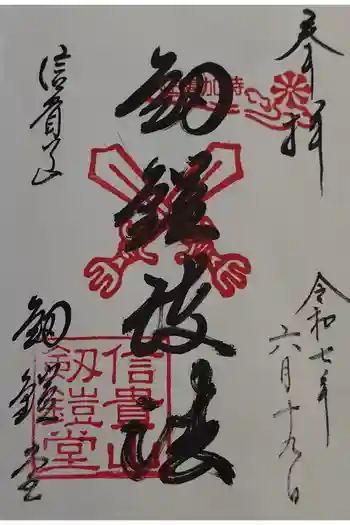 奉拝
令和七年
六月十九日
釼鎧護法
信貴山
釼鎧堂
信貴山
劔鎧堂